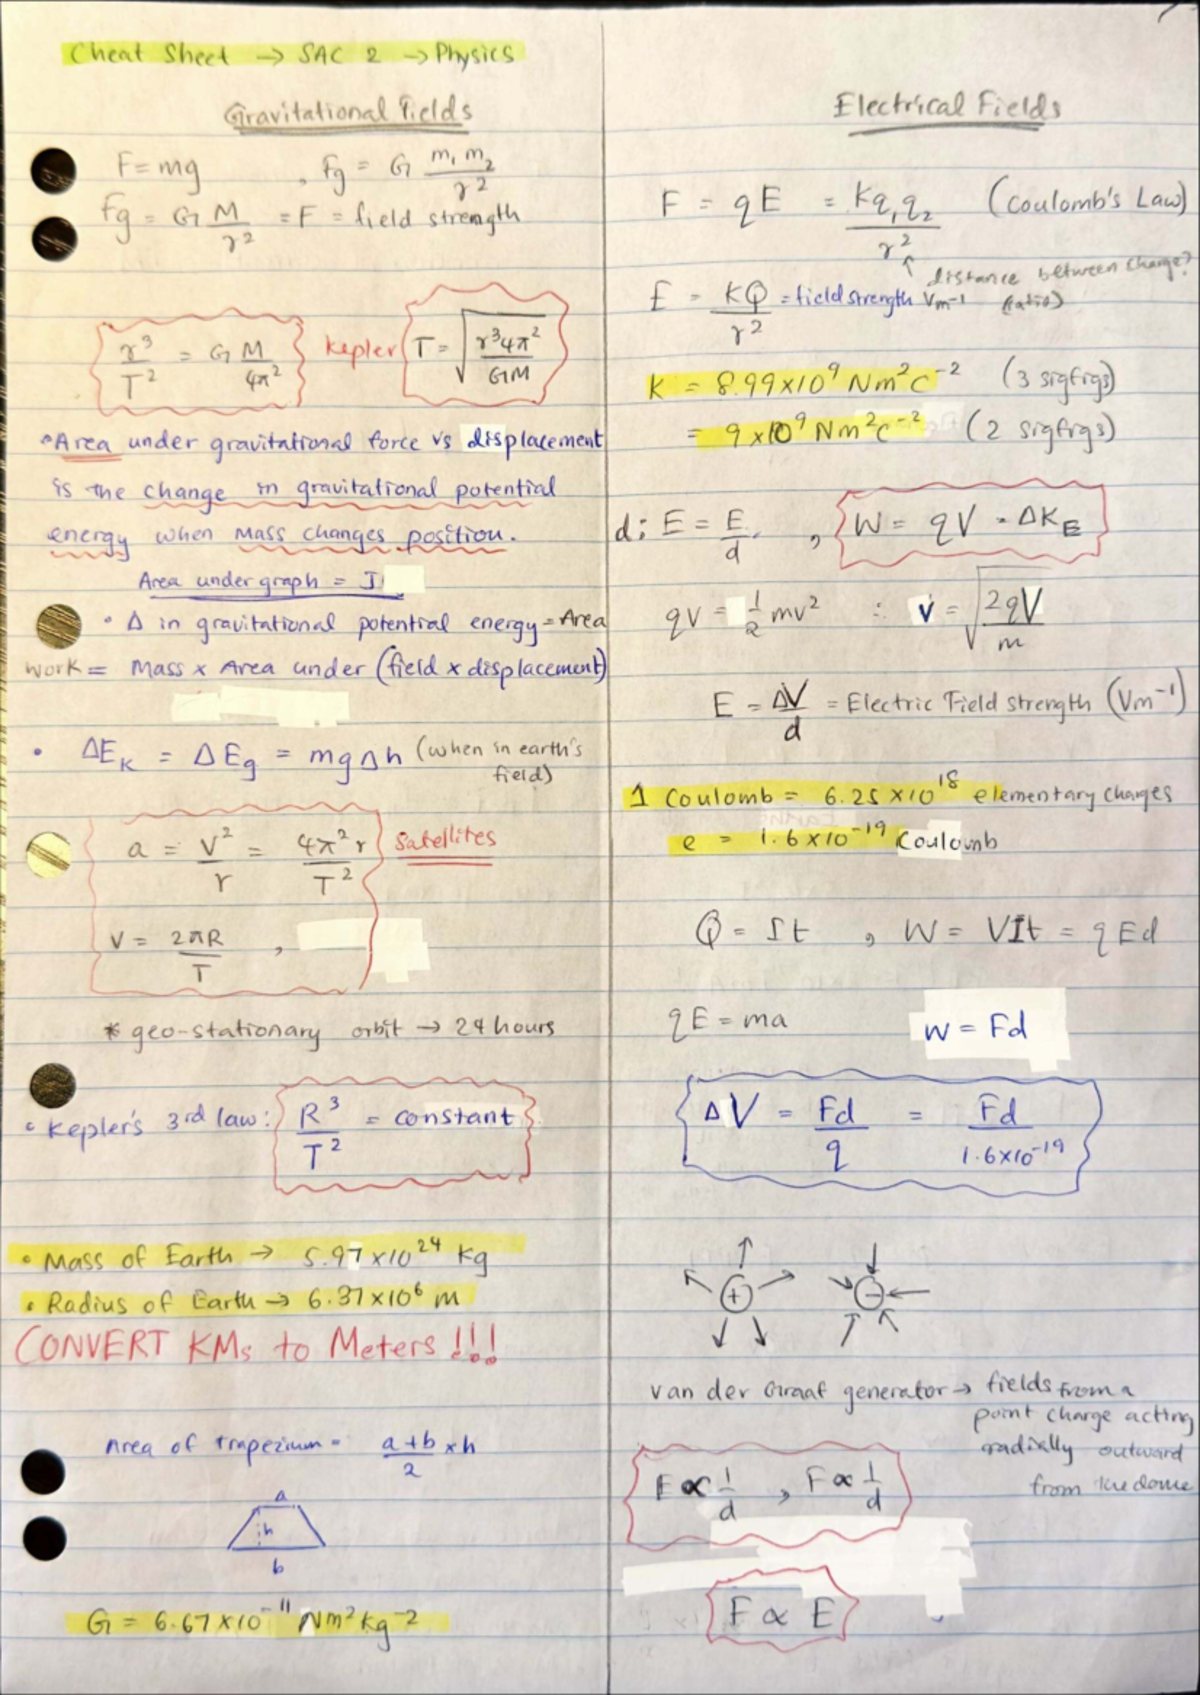 Cheat Sheet → SAC 2 → Physics
Gravitational Fields
F = mg , Fg = G m₁ m₂ / r²
Fg = G M / r² = F = field strength
r³ / T² = G M / 4π² Kepler T = √(r³4π² / GM)
• Area under gravitational force vs displacement
is the change in gravitational potential
energy when Mass changes position.
Area under graph = J
• Δ in gravitational potential energy = Area
work = Mass x Area under (field x displacement)
• ΔE_K = ΔEg = mgΔh (when in earth's
field)
a = V² / r = 4π²r / T² Satellites
V = 2πR / T ,
* geo-stationary orbit → 24 hours
• Kepler's 3rd law: R³ / T² = constant
• Mass of Earth → 5.97 x 10²⁴ kg
• Radius of Earth → 6.37 x 10⁶ m
CONVERT KMs to Meters !!!
Area of trapezium = a + b / 2 x h
a
h
b
G = 6.67 x 10⁻¹¹ Nm² kg⁻²
Electrical Fields
F = qE = Kq₁q₂ / r² (Coulomb's Law)
distance between charge?
E = KQ / r² = field strength Vm⁻¹ (ratio)
K = 8.99 x 10⁹ Nm²C⁻² (3 sigfigs)
= 9 x 10⁹ Nm²C⁻² (2 sigfigs)
d: E = E / d , W = qV = ΔK_E
qV = 1/2 mv² ∴ v = √(2qV / m)
E = ΔV / d = Electric Field strength (Vm⁻¹)
1 Coulomb = 6.25 x 10¹⁸ elementary charges
e = 1.6 x 10⁻¹⁹ Coulomb
Q = It , W = VIt = qEd
qE = ma W = Fd
ΔV = Fd / q = Fd / 1.6x10⁻¹⁹
+ −
van der Graaf generator → fields from a
point charge acting
radially outward
from the dome
E ∝ 1/d , F ∝ 1/d
F ∝ E